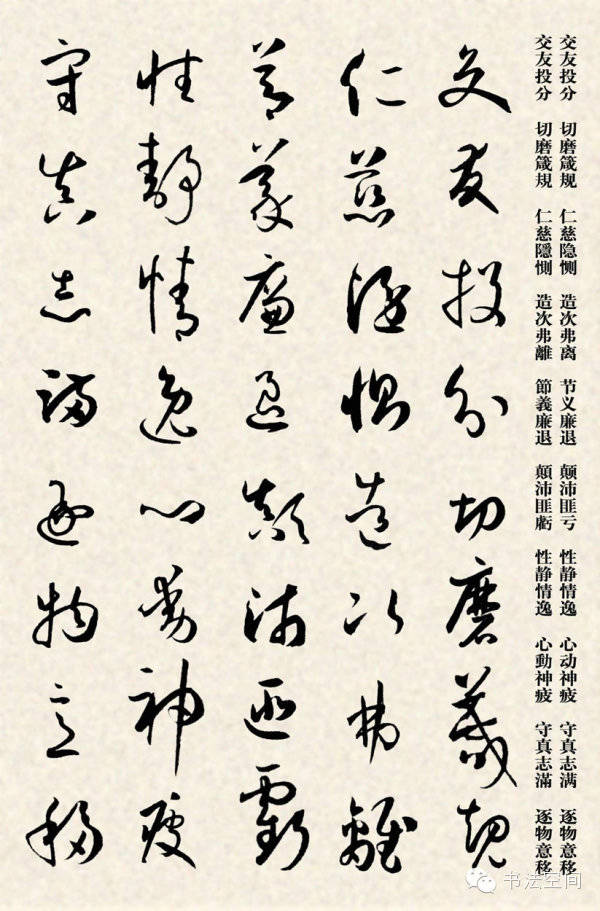 交友投分 切磨箴规 仁慈隐恻 造次弗离 节义廉退 颠沛匪亏 性静情逸 心动神疲 守真志满 逐物意移
交友投分 切磨箴規 仁慈隱惻 造次弗離 節義廉退 顛沛匪虧 性静情逸 心動神疲 守真志滿 逐物意移
交友投分切磨箴規
仁慈隱惻造次弗離
節義廉退顛沛匪虧
性靜情逸心動神疲
守真志滿逐物意移
书法空间